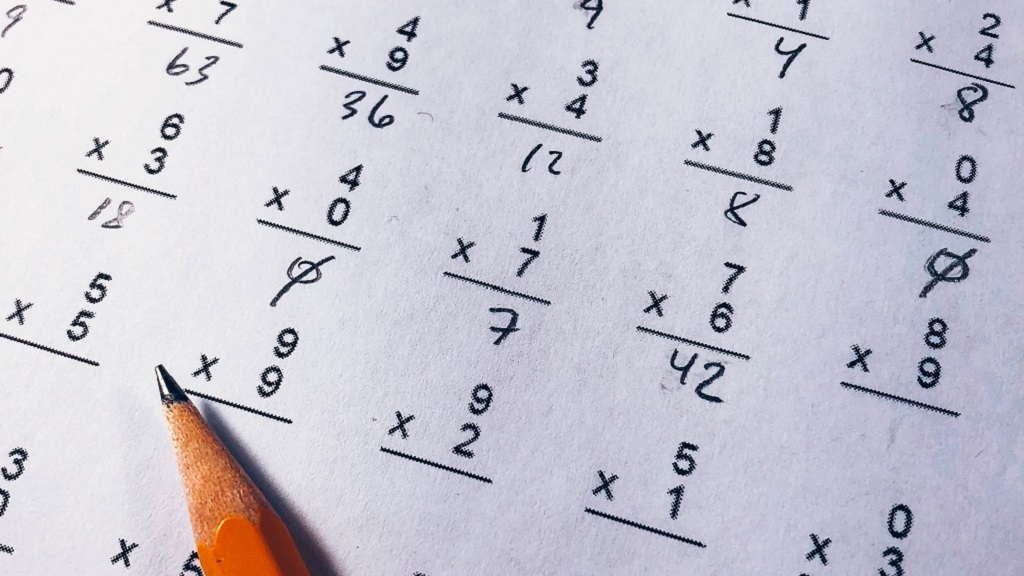 9
x 1
4
2
x 4
8
9
x 7
63
4
x 9
36
3
x 4
12
1
x 8
8
0
x 4
0
6
x 3
18
4
x 0
0
1
x 7
7
7
x 6
42
8
x 9
5
x 5
9
x 9
9
x 2
5
x 1
0
x 3
3
x